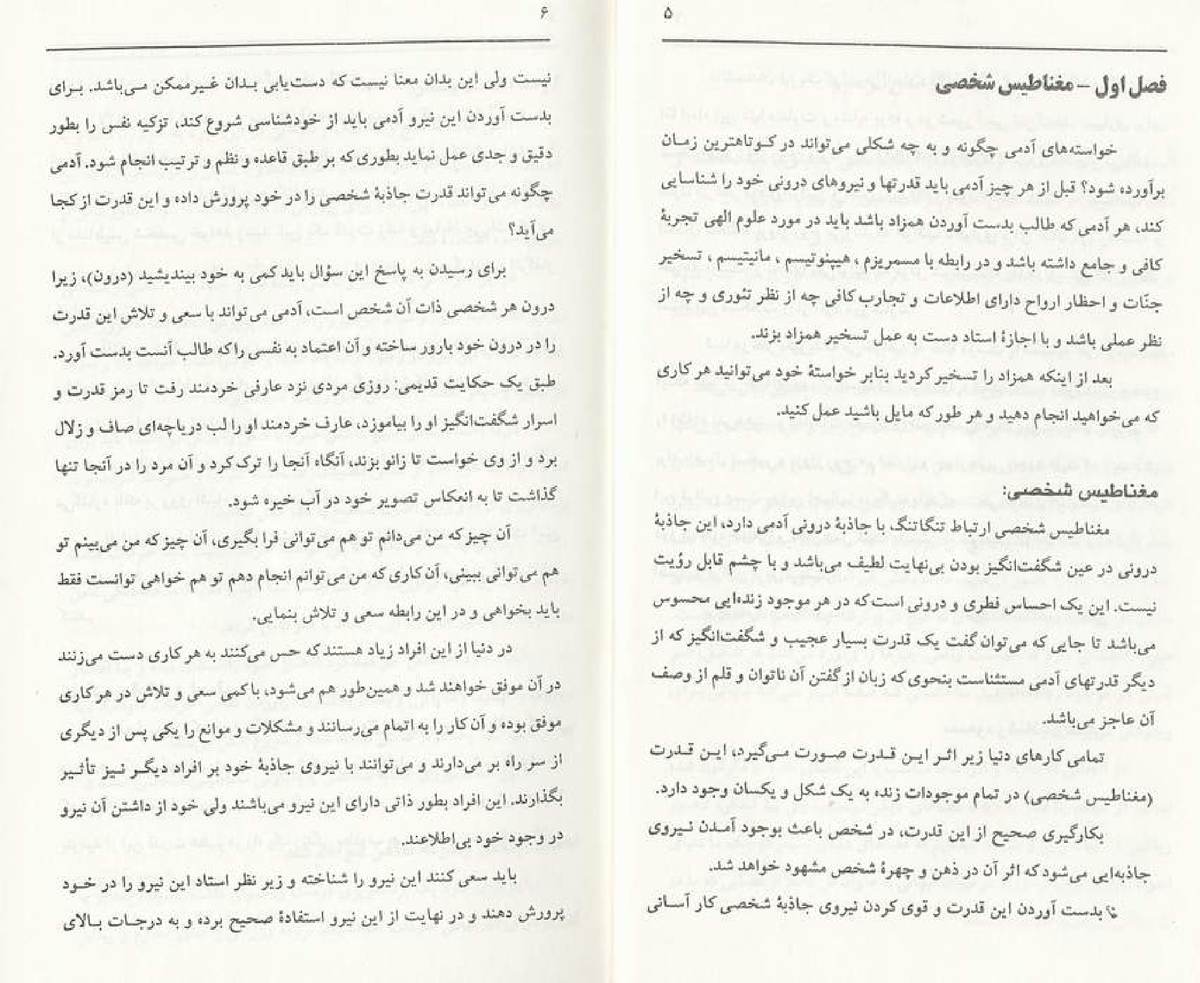 ۵
فصل اول – مغناطیس شخصی
خواسته‌های آدمی چگونه و به چه شکلی می‌تواند در کوتاهترین زمان
برآورده شود؟ قبل از هر چیز آدمی باید قدرتها و نیروهای درونی خود را شناسایی
کند، هر آدمی که طالب بدست آوردن همزاد باشد باید در مورد علوم الهی تجربهٔ
کافی و جامع داشته باشد و در رابطه با مسمریزم، هیپنوتیسم، مانیتیسم، تسخیر
جنّات و احظار ارواح دارای اطلاعات و تجارب کافی چه از نظر تئوری و چه از
نظر عملی باشد و با اجازهٔ استاد دست به عمل تسخیر همزاد بزند.
بعد از اینکه همزاد را تسخیر کردید بنابر خواستهٔ خود می‌توانید هر کاری
که می‌خواهید انجام دهید و هر طور که مایل باشید عمل کنید.
مغناطیس شخصی:
مغناطیس شخصی ارتباط تنگاتنگ با جاذبهٔ درونی آدمی دارد، این جاذبهٔ
درونی در عین شگفت‌انگیز بودن بی‌نهایت لطیف می‌باشد و با چشم قابل رؤیت
نیست. این یک احساس فطری و درونی است که در هر موجود زنده‌ایی محسوس
می‌باشد تا جایی که می‌توان گفت یک قدرت بسیار عجیب و شگفت‌انگیز که از
دیگر قدرتهای آدمی مستثناست بنحوی که زبان از گفتن آن ناتوان و قلم از وصف
آن عاجز می‌باشد.
تمامی کارهای دنیا زیر اثر این قدرت صورت می‌گیرد، این قدرت
(مغناطیس شخصی) در تمام موجودات زنده به یک شکل و یکسان وجود دارد.
بکارگیری صحیح از این قدرت، در شخص باعث بوجود آمدن نیروی
جاذبه‌ایی می‌شود که اثر آن در ذهن و چهرهٔ شخص مشهود خواهد شد.
بدست آوردن این قدرت و قوی کردن نیروی جاذبهٔ شخصی کار آسانی
۶
نیست ولی این بدان معنا نیست که دست‌یابی بدان غیرممکن می‌باشد. برای
بدست آوردن این نیرو آدمی باید از خودشناسی شروع کند، تزکیه نفس را بطور
دقیق و جدی عمل نماید بطوری که بر طبق قاعده و نظم و ترتیب انجام شود. آدمی
چگونه می‌تواند قدرت جاذبهٔ شخصی را در خود پرورش داده و این قدرت از کجا
می‌آید؟
برای رسیدن به پاسخ این سؤال باید کمی به خود بیندیشید (درون)، زیرا
درون هر شخصی ذات آن شخص است، آدمی می‌تواند با سعی و تلاش این قدرت
را در درون خود بارور ساخته و آن اعتماد به نفسی را که طالب آنست بدست آورد.
طبق یک حکایت قدیمی: روزی مردی نزد عارفی خردمند رفت تا رمز قدرت و
اسرار شگفت‌انگیز او را بیاموزد، عارف خردمند او را لب دریاچه‌ای صاف و زلال
برد و از وی خواست تا زانو بزند، آنگاه آنجا را ترک کرد و آن مرد را در آنجا تنها
گذاشت تا به انعکاس تصویر خود در آب خیره شود.
آن چیز که من می‌دانم تو هم می‌توانی فرا بگیری، آن چیز که من می‌بینم تو
هم می‌توانی ببینی، آن کاری که من می‌توانم انجام دهم تو هم خواهی توانست فقط
باید بخواهی و در این رابطه سعی و تلاش بنمایی.
در دنیا از این افراد زیاد هستند که حس می‌کنند به هر کاری دست می‌زنند
در آن موفق خواهند شد و همین‌طور هم می‌شود، با کمی سعی و تلاش در هر کاری
موفق بوده و آن کار را به اتمام می‌رسانند و مشکلات و موانع را یکی پس از دیگری
از سر راه بر می‌دارند و می‌توانند با نیروی جاذبهٔ خود بر افراد دیگر نیز تأثیر
بگذارند. این افراد بطور ذاتی دارای این نیرو می‌باشند ولی خود از داشتن آن نیرو
در وجود خود بی‌اطلاعند.
باید سعی کنند این نیرو را شناخته و زیر نظر استاد این نیرو را در خود
پرورش دهند و در نهایت از این نیرو استفادهٔ صحیح برده و به درجات بالای